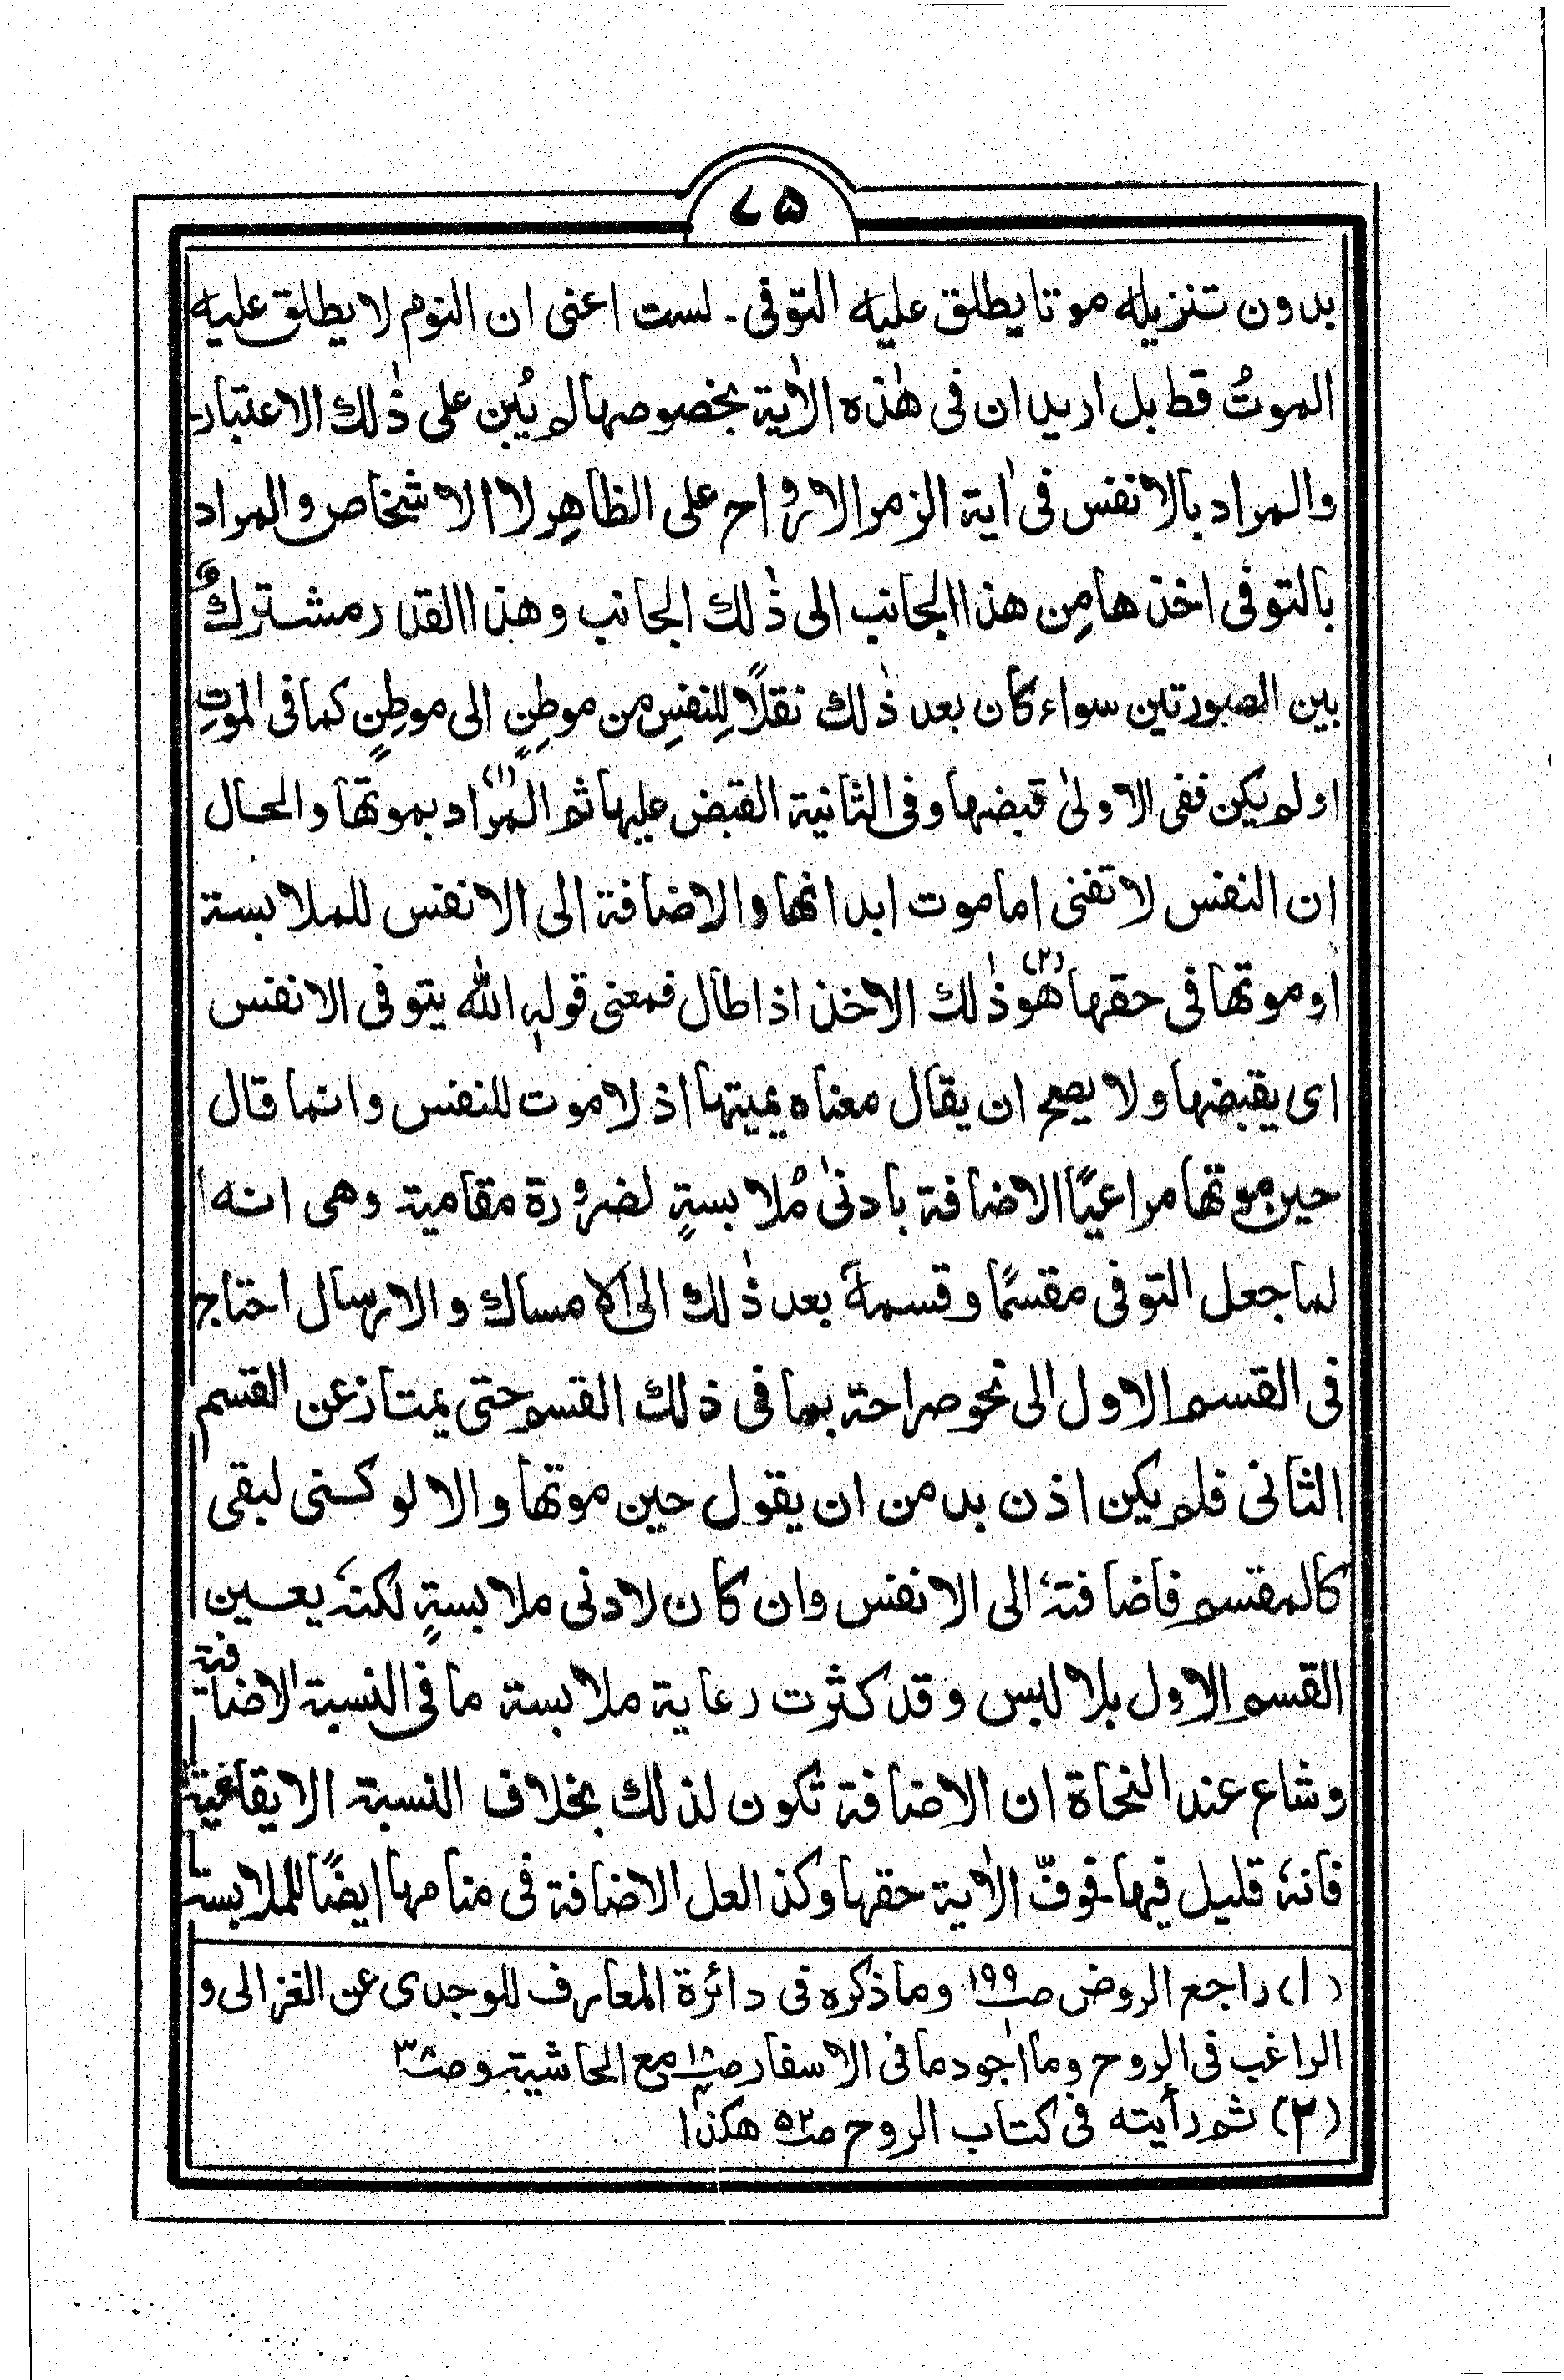 ۷۵
بدون تنزيله موتا يطلق عليه التوفى ـ لست اعنى ان النوم لا يطلق عليه
الموتُ قط بل اريد ان فى هٰذه الاٰية بخصوصها لم يُبن على ذٰلك الاعتبار
والمراد بالانفس فى اٰية الزمر الارواح على الظاهِر لا الاشخاص والمراد
بالتوفى اخذها مِن هذا الجانب الى ذٰلك الجانب وهذا القدر مشتركٌ
بين الصورتين سواء كان بعد ذٰلك نقلًا لِلنفسِ من موطِنٍ الى موطِنٍ كما فى الموتِ
اولم يكن ففى الاولىٰ قبضها وفى الثانية القبض عليها ثم المراد (۱) بموتها والحال
ان النفس لا تفنى اما موت ابدانها والاضافة الى الانفس للملابسة
او موتها فى حقها هُو (۲) ذٰلك الاخذ اذا طال فمعنى قولهٖ الله يتوفى الانفس
اى يقبضها ولا يصح ان يقال معناه يميتها اذ لا موت للنفس وانما قال
حين موتها مراعيًا الاضافة بادنىٰ مُلابسةٍ لضرورة مقامية وهى انه
لما جعل التوفى مقسمًا وقسمهٗ بعد ذٰلك الى الامساك والارسال احتاج
فى القسم الاول الى نحو صراحة بما فى ذلك القسم حتى يمتاز عن القسم
الثانى فلم يكن اذن بد من ان يقول حين موتها والا لو كنى لبقى
كالمقسم فاضافتهٗ الى الانفس وان كان لادنى ملابسةٍ لكنهٗ يعين
القسم الاول بلا لبس وقد كثرت رعاية ملابسة ما فى النسبة الاضافية
وشاع عند النحاة ان الاضافة تكون لذلك بخلاف النسبة الايقاعية
فانهٗ قليل فيها ـ فوفّ الاٰية حقها وكذا لعل الاضافة فى منامها ايضًا للملابسة
(۱) راجع الروض صـ۱۹۹ وما ذكره فى دائرة المعارف للوجدى عن الغزالى و
الراغب فى الروح وما اجود ما فى الاسفار صـ مع الحاشية وصـ
(۲) ثم رأيته فى كتاب الروح صـ۵۲ هكذا